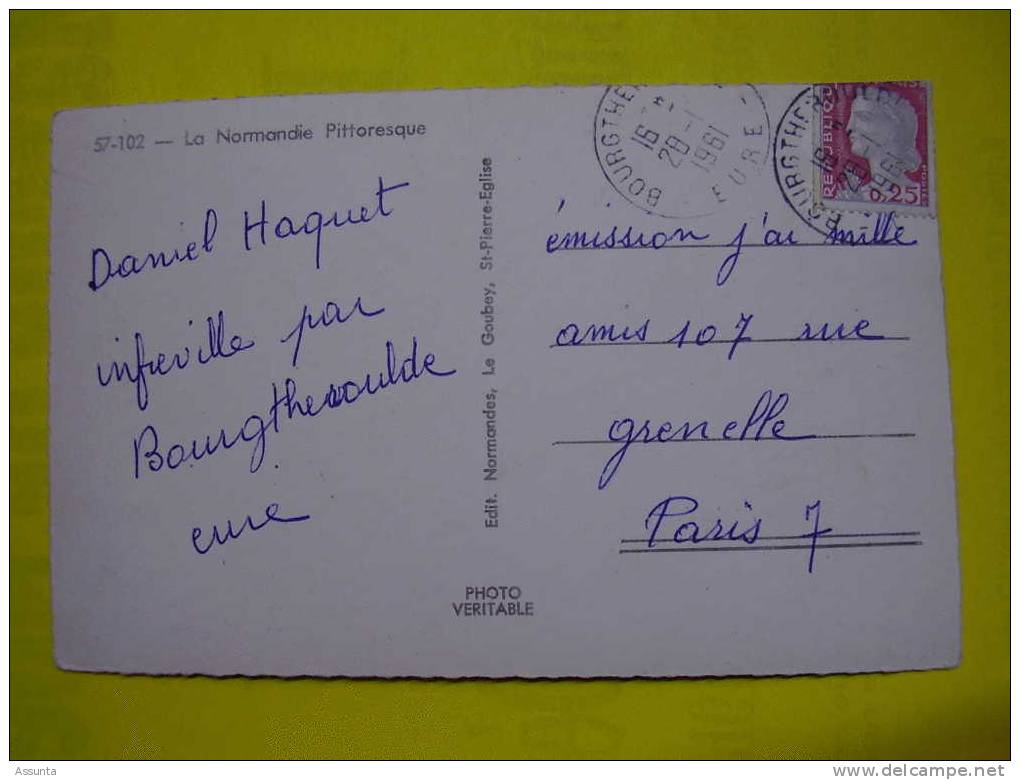 57-102 — La Normandie Pittoresque
Daniel Haquet
infreville par
Bourgtheroulde
eure
Edit. Normandes, Le Goubey, St-Pierre-Eglise
PHOTO
VERITABLE
16 H
28 -1
1961
EURE
BOURGTHEROULDE
16 H
28 -1
1961
REPUBLIQUE
0,25
émission j'ai mille
amis 107 rue
grenelle
Paris 7
Assunta
www.delcampe.net